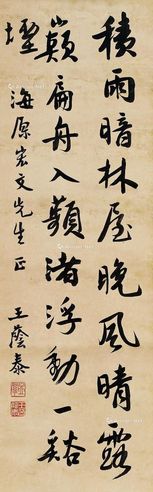 積雨暗林屋晚風晴露
巔扁舟入蘋渚浮動一谿
煙
海原宏文先生正
王蔭泰